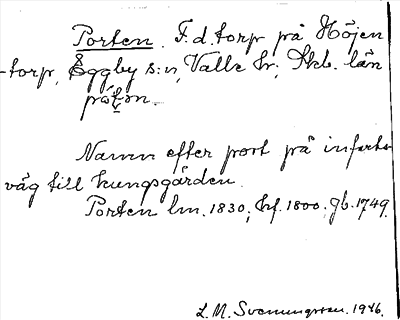 Porten. F.d. torp på Höjen
-torp, Eggby s:n, Valle hr; Skb. län
pát̬ən.
Namn efter port på infarts-
väg till kungsgården.
Porten lm. 1830; hf. 1800; jb. 1749.
L. M. Svenungsson. 1946.